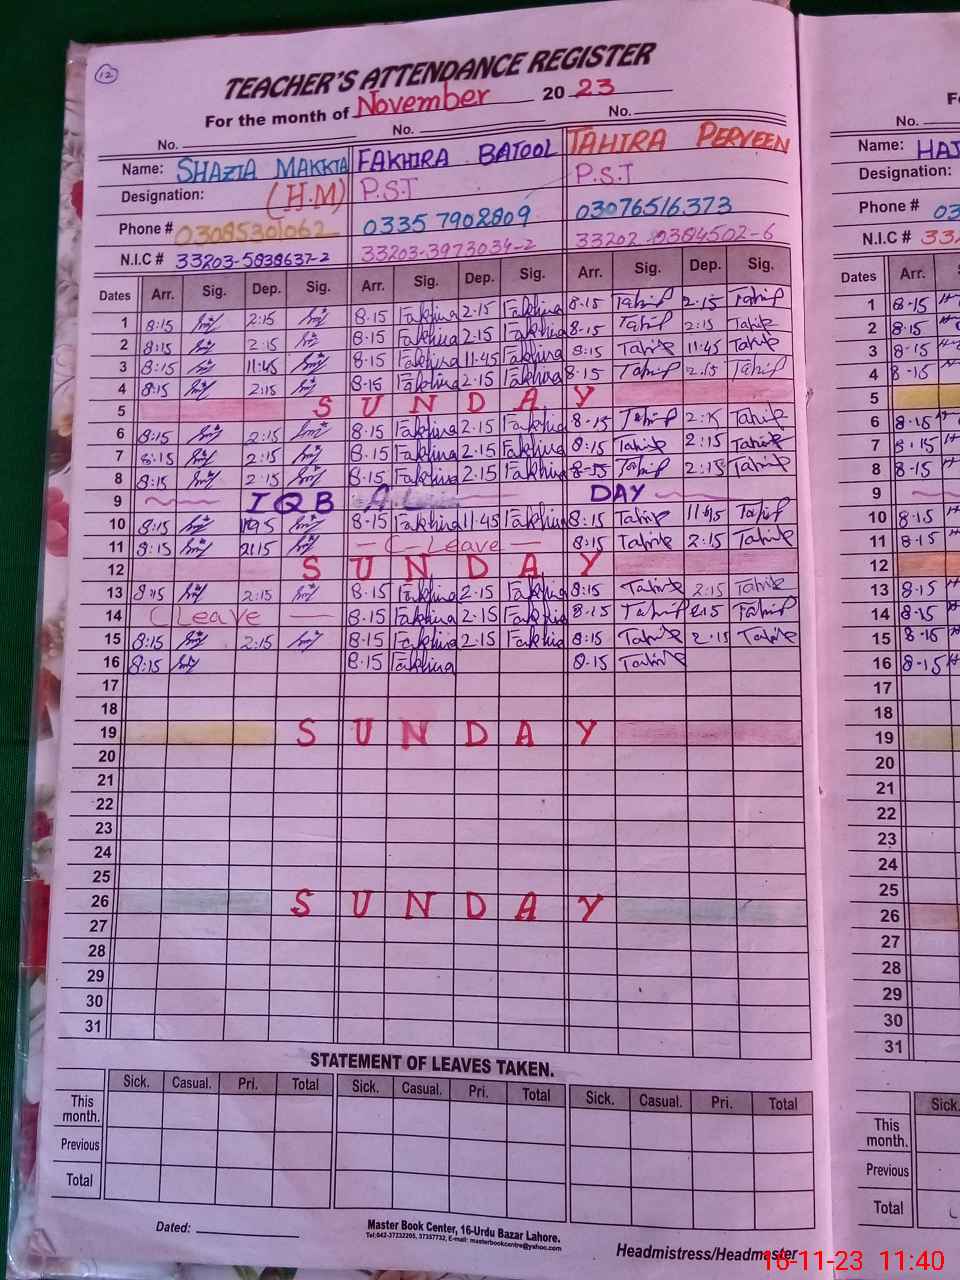 12
TEACHER'S ATTENDANCE REGISTER
For the month of November 20 23
No. No. No.
Name: SHAZIA MAKKIA FAKHIRA BATOOL TAHIRA PERVEEN
Designation: (H.M) P.S.T P.S.T
Phone # 03085301062 0335 7902809 03076516373
N.I.C # 33203-5838637-2 33203-3973034-2 33202-0384502-6
Dates Arr. Sig. Dep. Sig. Arr. Sig. Dep. Sig. Arr. Sig. Dep. Sig.
1 8:15 2:15 8.15 Fakhira 2.15 Fakhira 8.15 Tahir 2.15 Tahir
2 8:15 2:15 8.15 Fakhira 2.15 Fakhira 8.15 Tahir 2:15 Tahir
3 8:15 11:45 8.15 Fakhira 11.45 Fakhira 8:15 Tahir 11:45 Tahir
4 8:15 2:15 8.15 Fakhira 2.15 Fakhira 8.15 Tahir 2.15 Tahir
5 SUNDAY
6 8:15 2:15 8.15 Fakhira 2.15 Fakhira 8.15 Tahir 2:15 Tahir
7 8:15 2:15 8.15 Fakhira 2.15 Fakhira 8:15 Tahir 2:15 Tahir
8 8:15 2:15 8.15 Fakhira 2.15 Fakhira 8-15 Tahir 2:15 Tahir
9 IQBAL DAY
10 8:15 8.15 Fakhira 11.45 Fakhira 8:15 Tahir Tahir
11 8:15 2:15 - C-Leave - 8:15 Tahir 2:15 Tahir
12 SUNDAY
13 8:15 2:15 8.15 Fakhira 2.15 Fakhira 8:15 Tahir 2:15 Tahir
14 C Leave — 8.15 Fakhira 2.15 Fakhira 8.15 Tahir 2:15 Tahir
15 8:15 2:15 8.15 Fakhira 2.15 Fakhira 8:15 Tahir 2.15 Tahir
16 8:15 8.15 Fakhira 8.15 Tahir
17
18
19 SUNDAY
20
21
22
23
24
25
26 SUNDAY
27
28
29
30
31
STATEMENT OF LEAVES TAKEN.
Sick. Casual. Pri. Total Sick. Casual. Pri. Total Sick. Casual. Pri. Total
This month.
Previous
Total
Dated:
Master Book Center, 16-Urdu Bazar Lahore.
Tel:042-37232205, 37357732, E-mail: masterbookcentre@yahoo.com
Headmistress/Headmaster
No.
Name:
Designation:
Phone # 03
N.I.C # 332
Dates Arr.
1 8-15
2 8.15
3 8.15
4 8-15
5
6 8.15
7 8.15
8 8.15
9
10 8.15
11 8.15
12
13 8.15
14 8.15
15 8.15
16 8.15
17
18
19
20
21
22
23
24
25
26
27
28
29
30
31
Sick.
This month.
Previous
Total
16-11-23 11:40